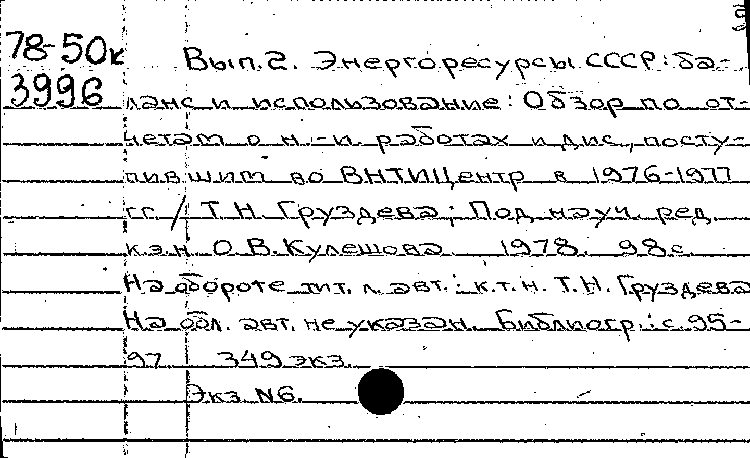 78-50к Вып.2. Энергоресурсы СССР: ба-
3996 ланс и использование: Обзор по от-
четам о н.-и. работах и дис., посту-
пившим во ВНТИЦентр в 1976-1977
гг. / Т.Н. Груздева; Под науч. ред.
к.э.н. О.В. Кулешова. 1978. 98 с.
На обороте тит. л. авт.: к.т.н. Т.Н. Груздева
На обл. авт. не указан. Библиогр.: с. 95-
97. 349 экз.
Экз. N6.